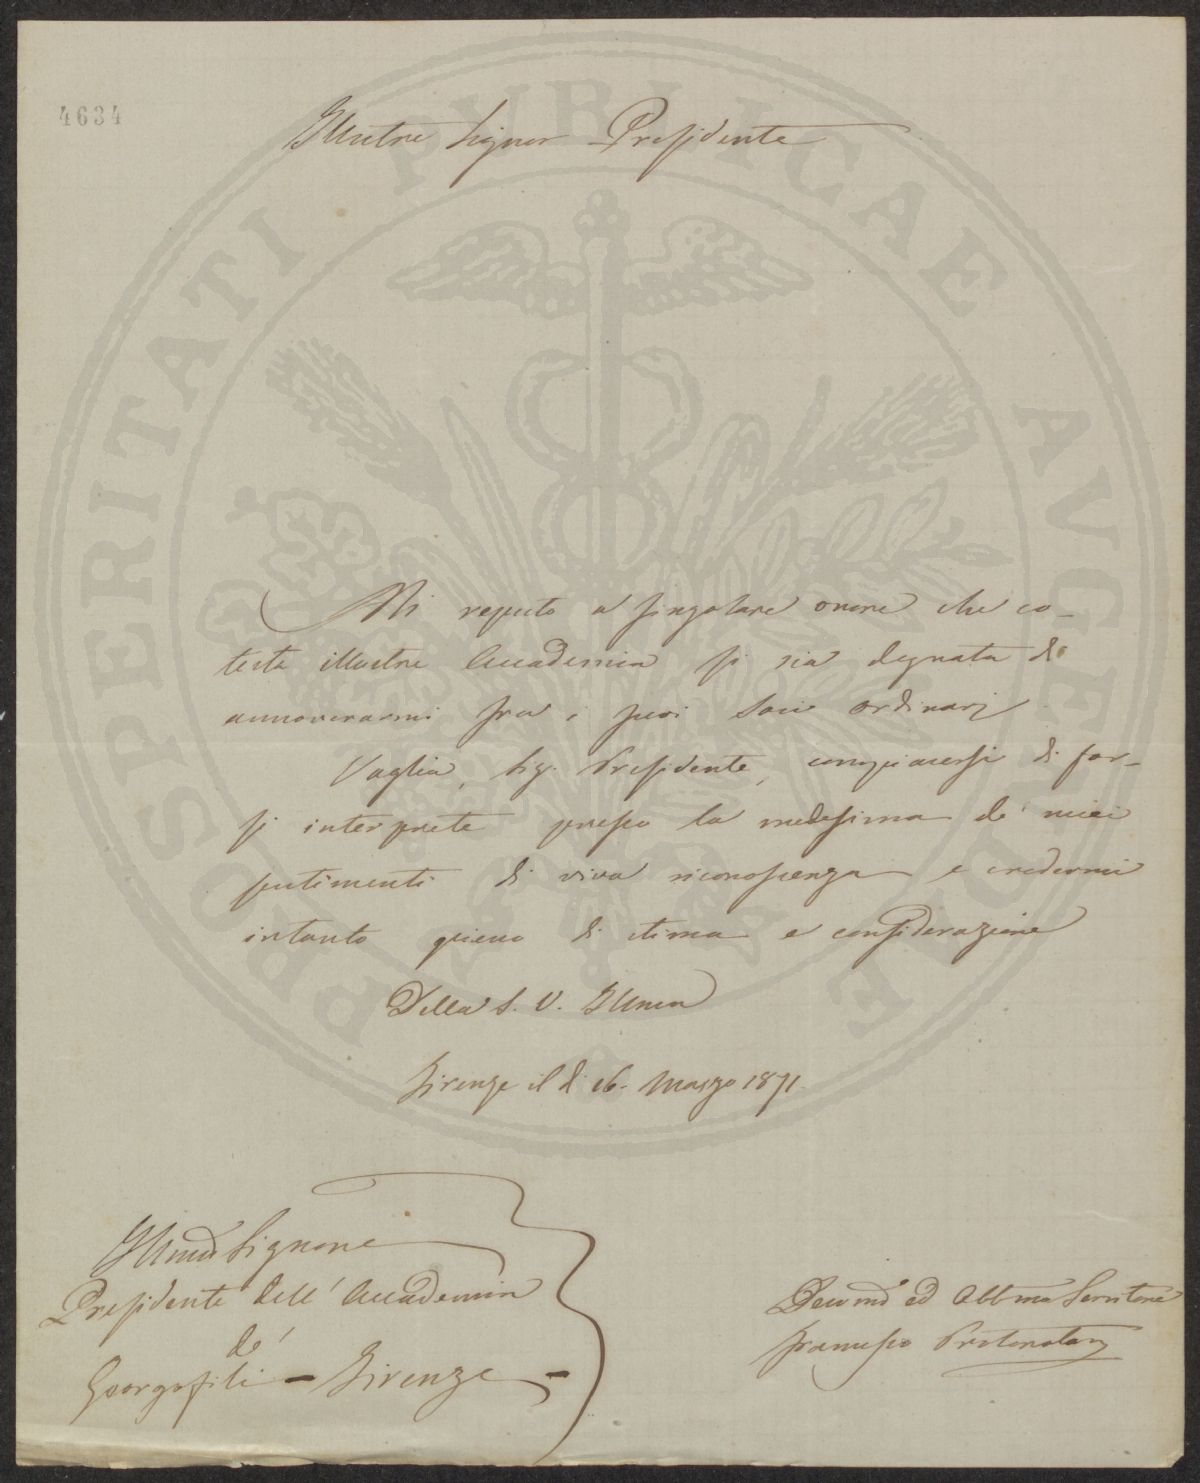 4634
PROSPERITATI PVBLICAE AVGENDAE
Illustre Signor Presidente
Mi reputo a singolare onore che co-
testa illustre Accademia si sia degnata di
annoverarmi fra i suoi Soci ordinarj
Voglia, Sig. Presidente, compiacersi di far-
si interprete presso la medesima de' miei
sentimenti di viva riconoscenza e credermi
intanto pieno di stima e considerazione
Della S. V. Illma
Firenze il dì 16. Marzo 1871.
Illmo Signore
Presidente dell' Accademia
de'
Georgofili - Firenze -
Devmo ed Obbmo Servitore
Francesco Protonotari